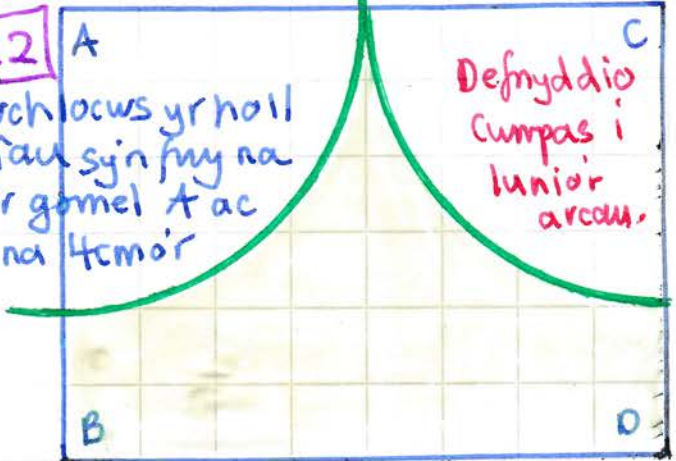 2
A
C
chlocws yr holl
au sy'n fwy na
r gornel A ac
na 4cm o'r
Defnyddio
Cwmpas i
lunio'r
arcau.
B
D